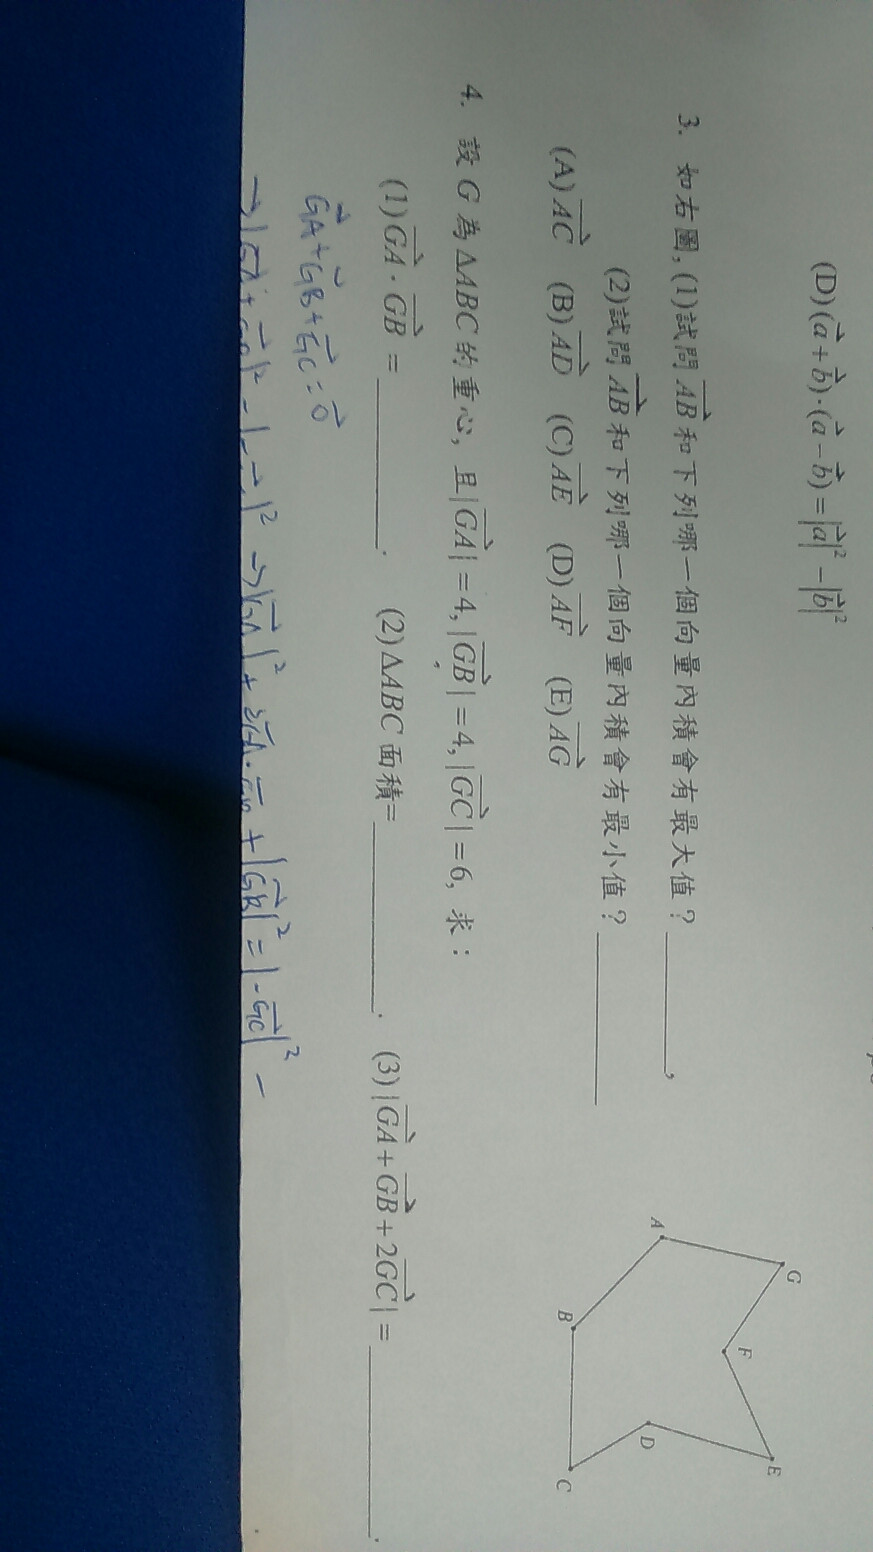 (D)(a⃗+b⃗)·(a⃗−b⃗)=|a⃗|²−|b⃗|²
3. 如右圖, (1)試問 AB⃗ 和下列哪一個向量內積會有最大值? ________,
(2)試問 AB⃗ 和下列哪一個向量內積會有最小值? ________
(A) AC⃗ (B) AD⃗ (C) AE⃗ (D) AF⃗ (E) AG⃗
G
A
F
B
E
D
C
4. 設 G 為 ΔABC 的重心, 且 |GA⃗|=4, |GB⃗|=4, |GC⃗|=6, 求:
(1) GA⃗·GB⃗ = ________. (2) ΔABC 面積= ________. (3) |GA⃗+GB⃗+2GC⃗| = ________.
GA⃗+GB⃗+GC⃗=0⃗
→ |GA⃗ + |² = | |² → |GA⃗|² + 2GA⃗· + |GB⃗|² = |-GC⃗|²